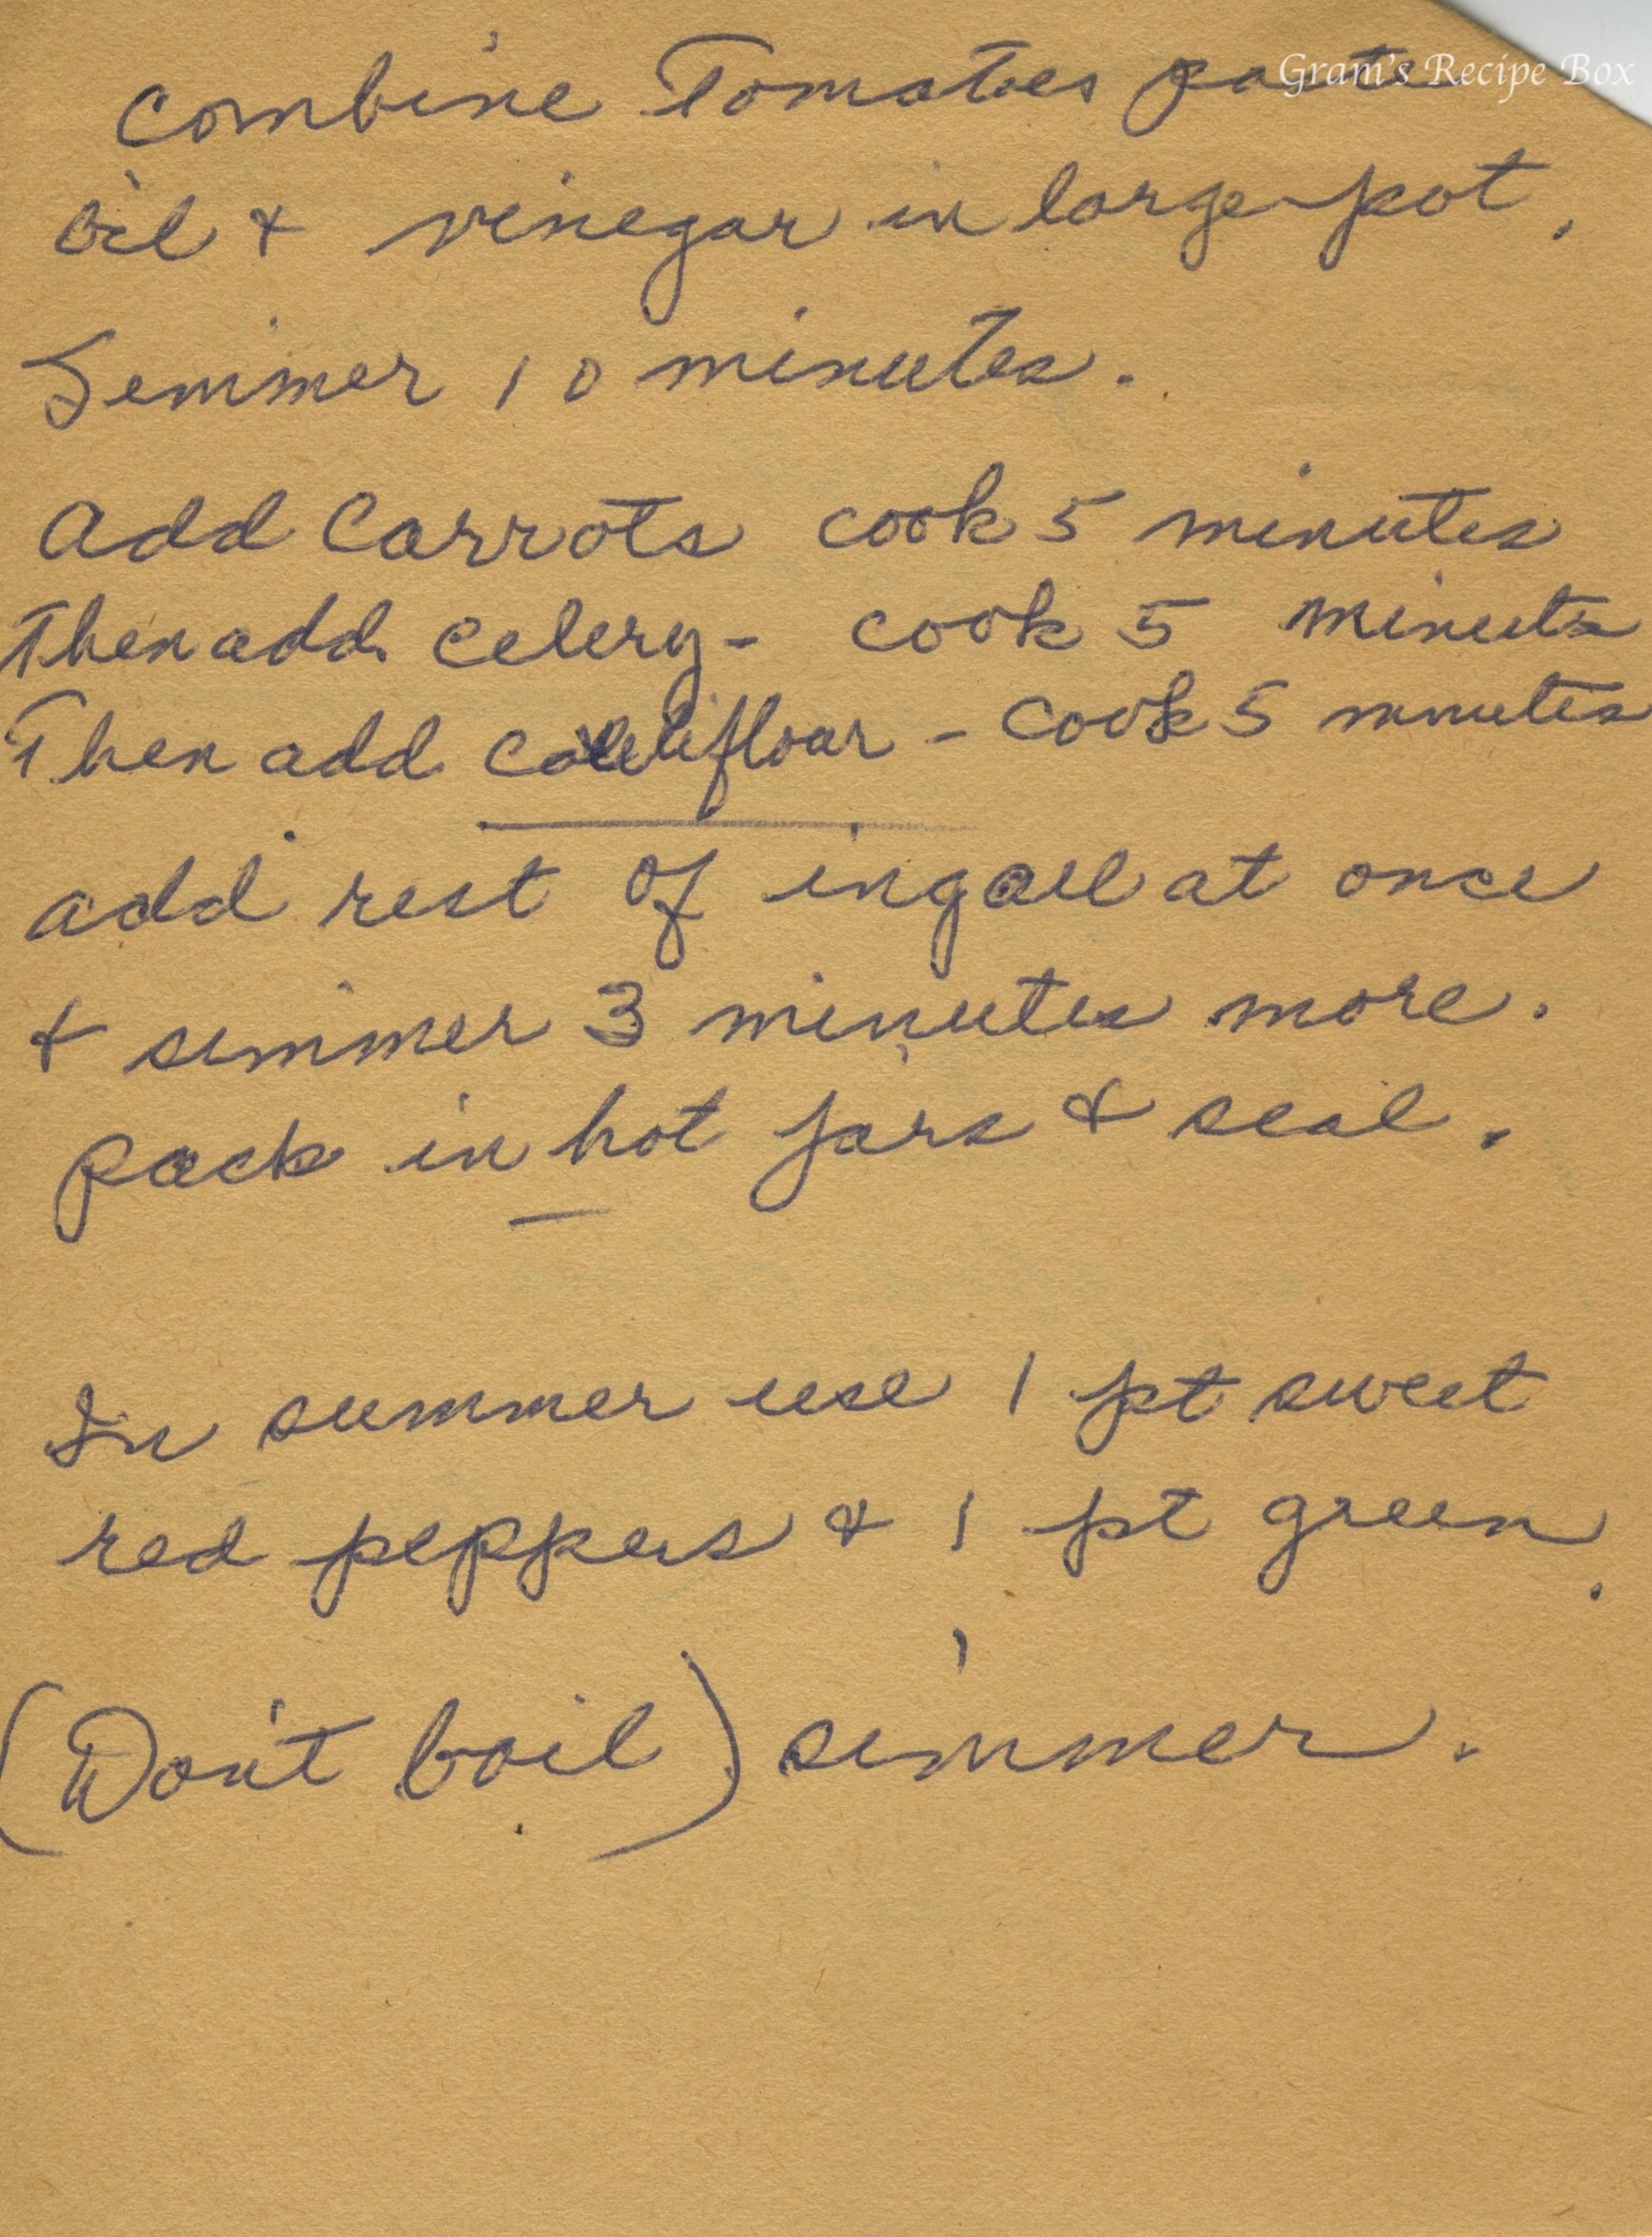 Gram's Recipe Box
Combine Tomatoes paste
Oil & vinegar in large pot.
Simmer 10 minutes.
Add Carrots cook 5 minutes
Then add celery - cook 5 minuts
Then add califlour - cook 5 minutes
add rest of ing all at once
& simmer 3 minutes more.
pack in hot jars & seal.
In summer use 1 pt sweet
red peppers & 1 pt green.
(Don't boil) simmer.